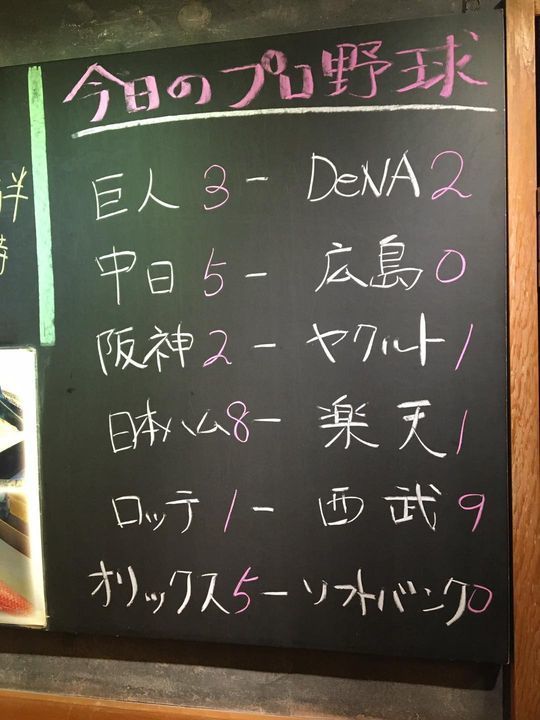 今日のプロ野球
巨人 3 - DeNA 2
中日 5 - 広島 0
阪神 2 - ヤクルト 1
日本ハム 8 - 楽天 1
ロッテ 1 - 西武 9
オリックス 5 - ソフトバンク 0